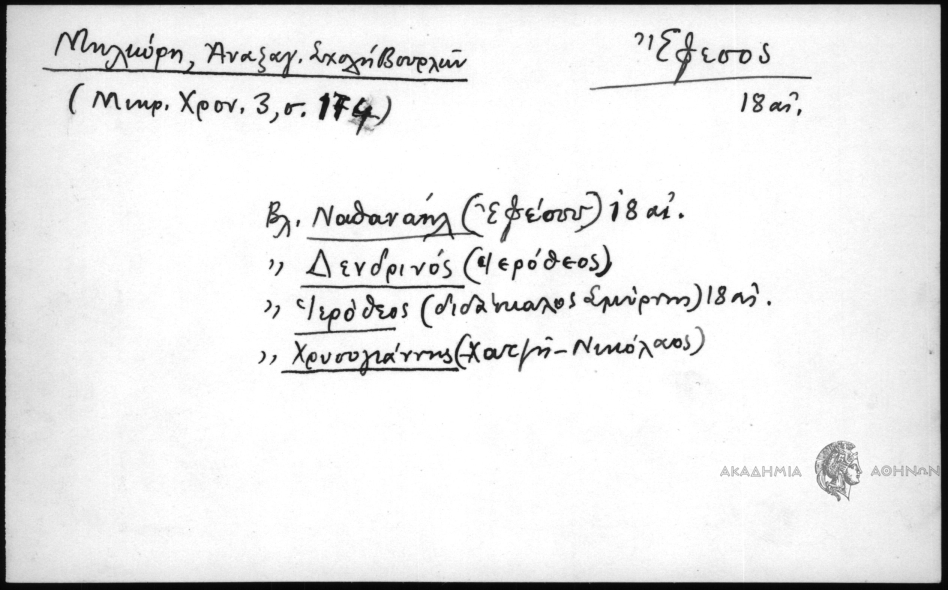 Μηλιώρη, Ἀναξαγ. Σχολὴ Βουρλῶν
(Μικρ. Χρον. 3, σ. 174)
Ἔφεσος
18 αἰ.
Βλ. Ναθαναήλ (Ἐφέσου) 18 αἰ.
,, Δενδρινός (Ἱερόθεος)
,, Ἱερόθεος (διδάσκαλος Σμύρνης) 18 αἰ.
,, Χρυσογιάννης (Χατζῆ-Νικόλαος)
ΑΚΑΔΗΜΙΑ ΑΘΗΝΩΝ